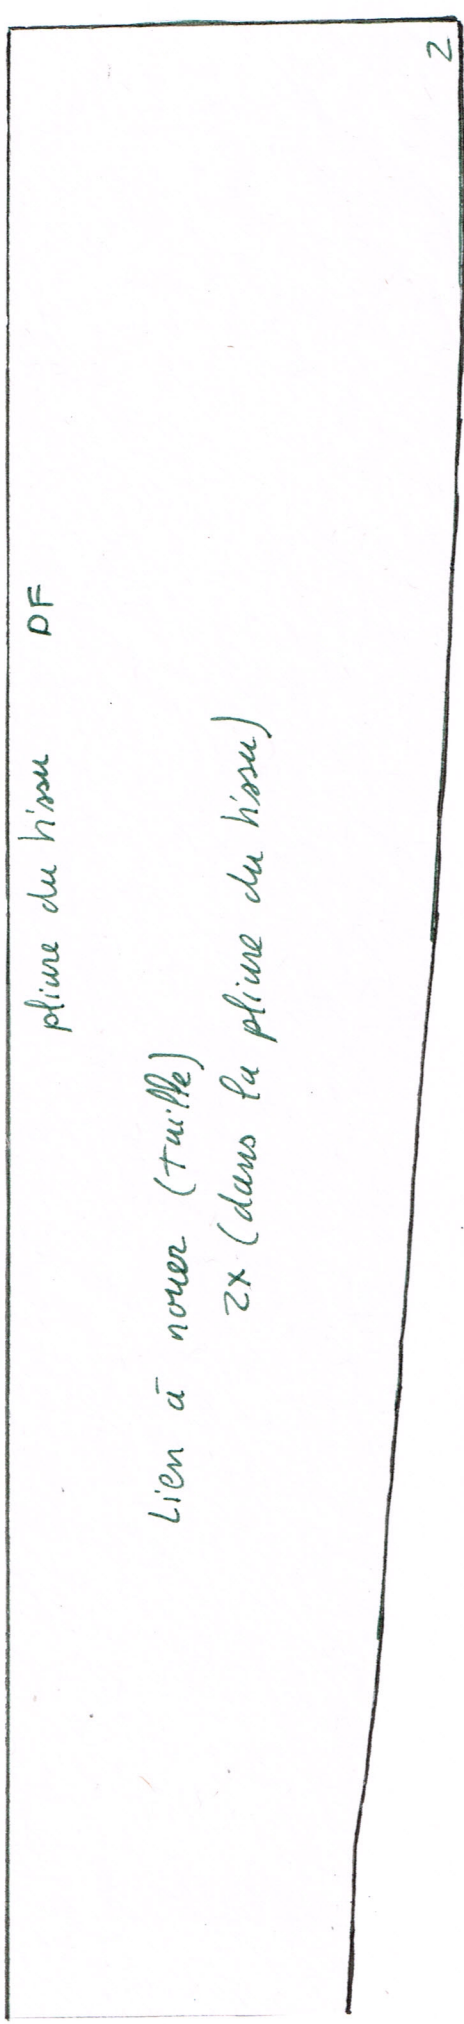 pliure du tissu DF
Lien à nouer (taille)
2x (dans la pliure du tissu)
2